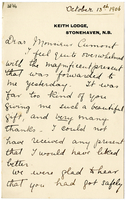 October 13th 1906
KEITH LODGE,
STONEHAVEN, N.B.
Dear Monsieur Cumont
I feel quite overwhelmed
with the magnificent present
that was forwarded to
me yesterday. It was
far too kind of you
giving me such a beautiful
gift, and very many
thanks. I could not
have received any present
that I would have liked
better.
We were glad to hear
that you had got safely